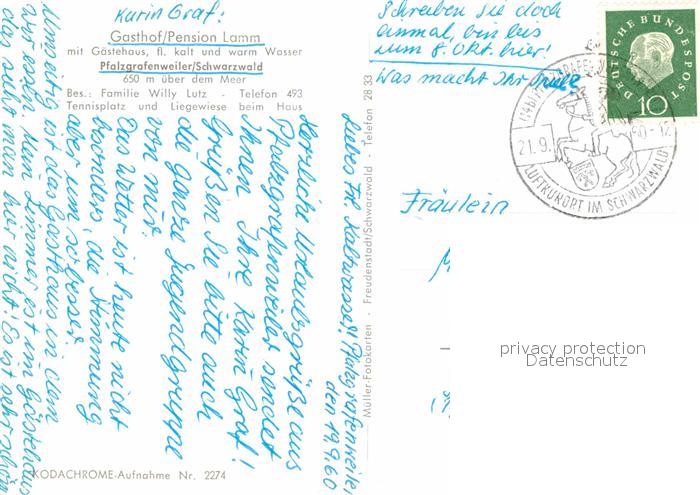 Karin Graf:
Gasthof/Pension Lamm
mit Gästehaus, fl. kalt und warm Wasser
Pfalzgrafenweiler/Schwarzwald
650 m über dem Meer
Bes.: Familie Willy Lutz - Telefon 493
Tennisplatz und Liegewiese beim Haus
Schreiben sie doch
einmal, bin bis
zum 8. OKT. hier!
Was macht Ihr
DEUTSCHE BUNDESPOST
10
21.9.
60-12
LUFTKURORT IM SCHWARZWALD
Liebes Frl. Pfalzgrafenweiler,
den 19.9.60
Herzliche Urlaubsgrüße aus
Pfalzgrafenweiler sendet
Ihnen Ihre Karin Graf!
Grüßen Sie bitte auch
die ganze Jugendgruppe
von mir.
Das Wetter ist heute nicht
besonders, die Stimmung
aber um so besser.
Umseitig ist das Gasthaus in dem
wir Mein Zimmer ist im Gästehaus
das sieht man hier nicht. Es ist sehr schön
Fräulein
Müller-Fotokarten - Freudenstadt/Schwarzwald - Telefon 28 33
KODACHROME-Aufnahme Nr. 2274
privacy protection
Datenschutz